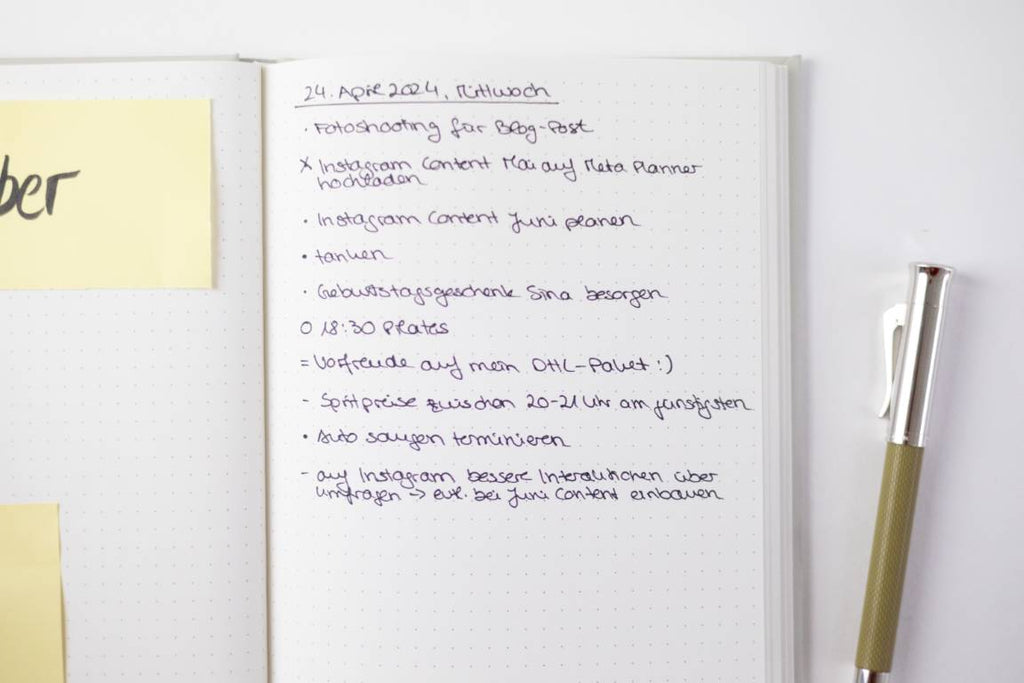 ber
24. April 2024, Mittwoch
· Fotoshooting für Blog-Post
x Instagram Content Mai auf Meta Planner
hochladen
· Instagram Content Juni planen
· tanken
· Geburtstagsgeschenk Sina besorgen
O 18:30 Pilates
= Vorfreude auf mein DHL-Paket :)
- Spritpreise zwischen 20-21 Uhr am günstigsten
· Auto saugen terminieren
- auf Instagram bessere Interaktionen über
Umfragen → evtl. bei Juni Content einbauen